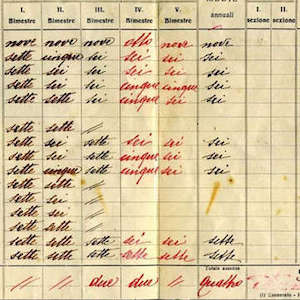 I. II. III. IV. V. annuali I. II.
Bimestre Bimestre Bimestre Bimestre Bimestre sezione sezione
nove nove nove otto nove nove
sette cinque sei sei sei sei
sette sei sei sei sei sei
sette sette sei cinque cinque sei
sette sette sei cinque sei sei
sette sette //
sette sei sette sei sei sei
sette sette sette cinque sei sei
sette cinque sette cinque sei sei
sette sette //
sette sei //
sette sei //
sette sette //
sette sette sette sei sei sette
sette sette sette sette sette sette
Totale assenze
// // due due // quattro